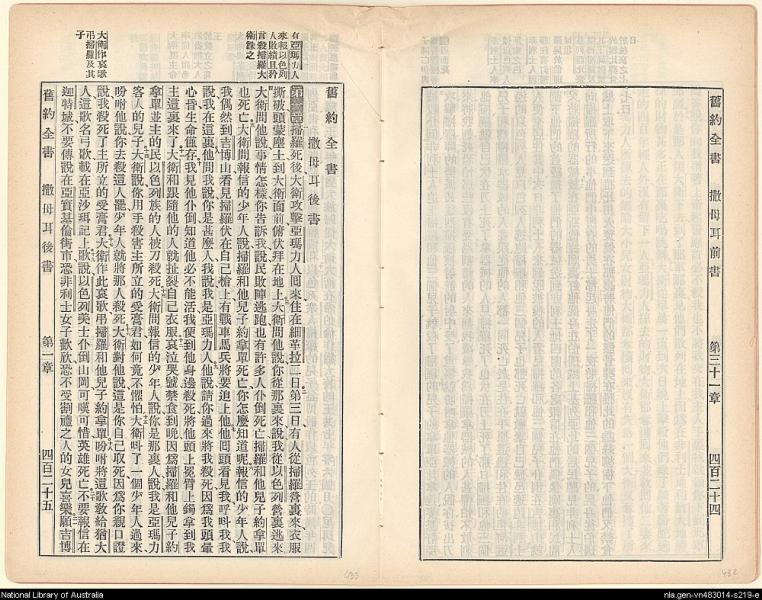 舊約全書 撒母耳前書 第三十一章 四百二十四
舊約全書
撒母耳後書
有亞瑪力人
來報以色列
人敗績且矜
言殺掃羅大
衛誅之
大衛作哀歌
弔掃羅及其
子
掃羅死後大衛攻擊亞瑪力人囘來住在細革拉二日第三日有人從掃羅營裏來衣服
撕破頭蒙塵土到大衛面前俯伏拜在地上大衛問他說你從那裏來說我從以色列營裏逃來
大衛問他說事情怎樣你告訴我說民敗陣逃跑也有許多人仆倒死亡掃羅和他兒子約拿單
也死亡大衛問報信的少年人說掃羅和他兒子約拿單死亡你怎麼知道呢報信的少年人說
我偶然到吉博山看見掃羅伏在自己槍上有戰車馬兵將要追上他他囘頭看見我呼叫我我
說我在這裏他問我說你是甚麼人我說我是亞瑪力人他說請你過來將我殺死因爲我頭暈
心昏生命猶存我見他仆倒知道他必不能活我便到他身邊殺死將他頭上冕臂上鐲拿到我
主這裏來了大衛和跟隨他的人就扯裂自己衣服哀泣哭號禁食到晚因爲掃羅和他兒子約
拿單並主的民以色列族的人被刀殺死大衛問報信的少年人說你是那裏人說我是亞瑪力
客人的兒子大衛說你用手殺害主所立的受膏君如何竟不懼怕大衛叫了一個少年人過來
吩咐他說你去殺這人罷少年人就將那人殺死大衛對他說這是你自己取死因爲你親口證
說我殺死了主所立的受膏君大衛作此哀歌弔掃羅和他兒子約拿單吩咐將這歌敎給猶大
人這歌名弓歌載在亞沙珥記上歌說以色列美士仆倒山岡可嘆可惜英雄死亡不要報信在
迦特城不要傳說在亞實基倫街市恐非利士女子歡欣恐不受割禮之人的女兒喜樂願吉博
舊約全書 撒母耳後書 第一章 四百二十五
National Library of Australia
nla.gen-vn483014-s219-e